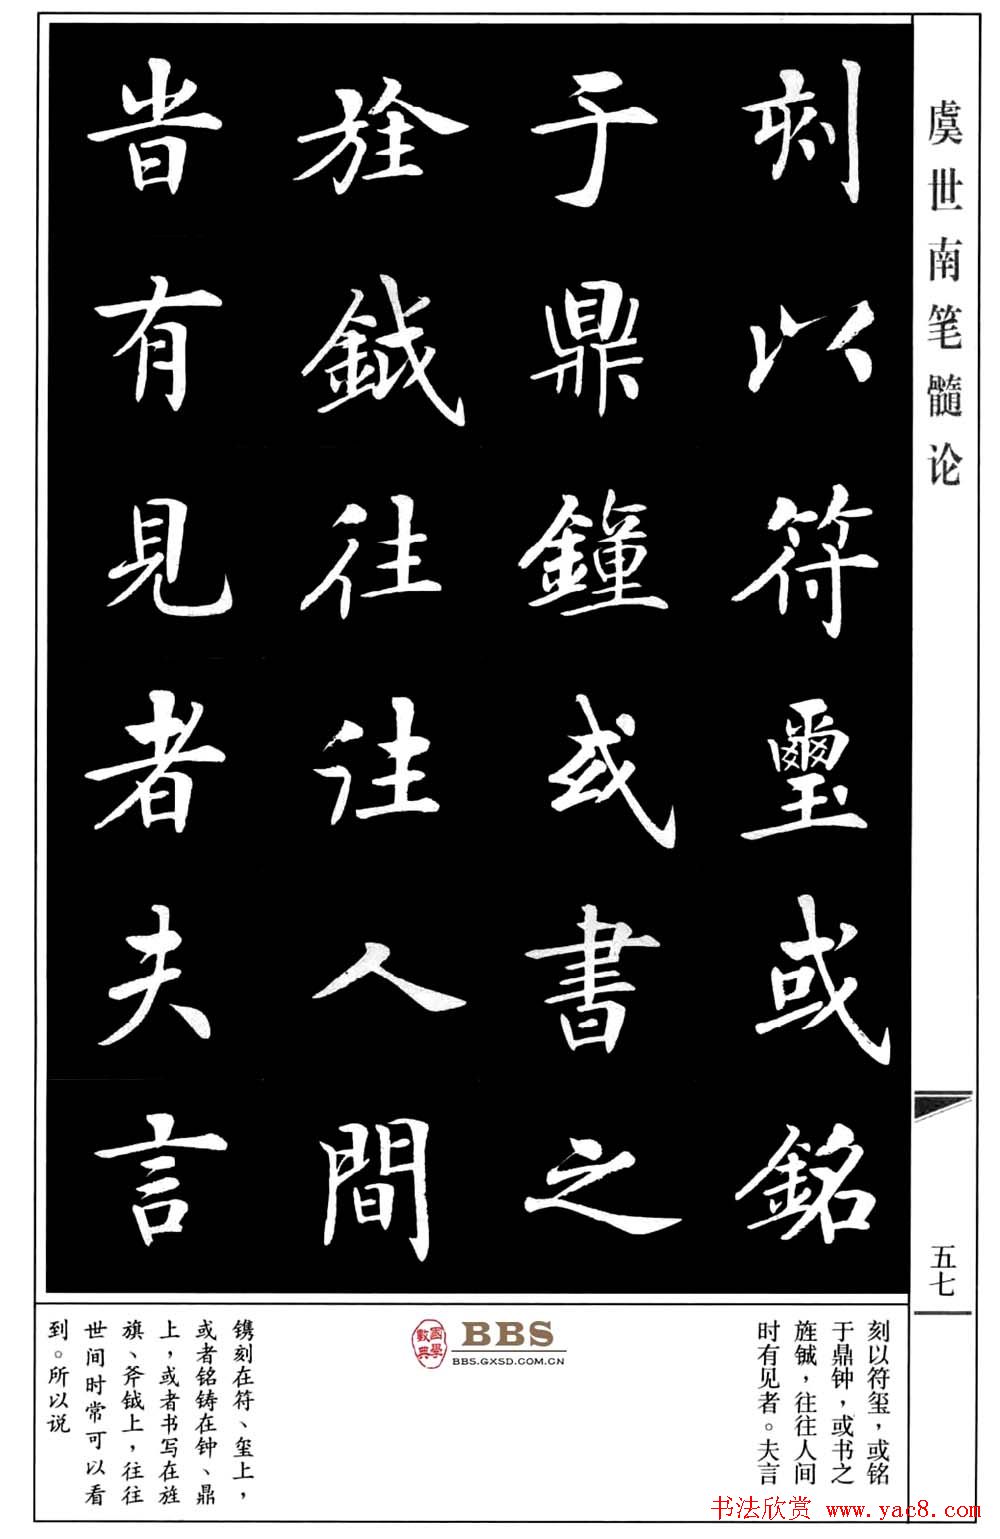 虞世南笔髓论
五七
刻以符璽或銘
于鼎鐘或書之
旌鉞往往人間
旹有見者夫言
刻以符玺，或铭
于鼎钟，或书之
旌钺，往往人间
时有见者。夫言
國學
數典
BBS
BBS.GXSD.COM.CN
镌刻在符、玺上，
或者铭铸在钟、鼎
上，或者书写在旌
旗、斧钺上，往往
世间时常可以看
到。所以说
书法欣赏 www.yac8.com